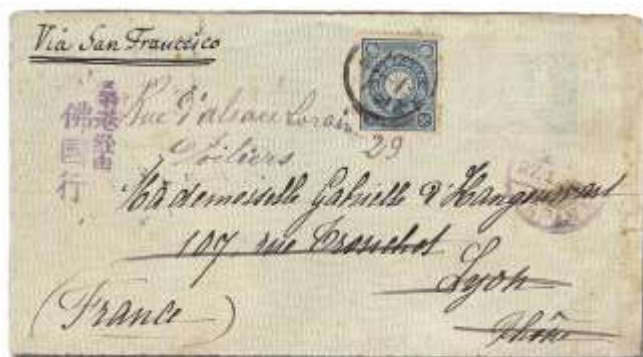 Via San Francisco
桑港経由
佛国行
Rue d'alsace Lorain
29
Poitiers
Mademoiselle Gabrielle d'Hangouwart
107, rue Tronchet
Lyon
(France)
Rhône